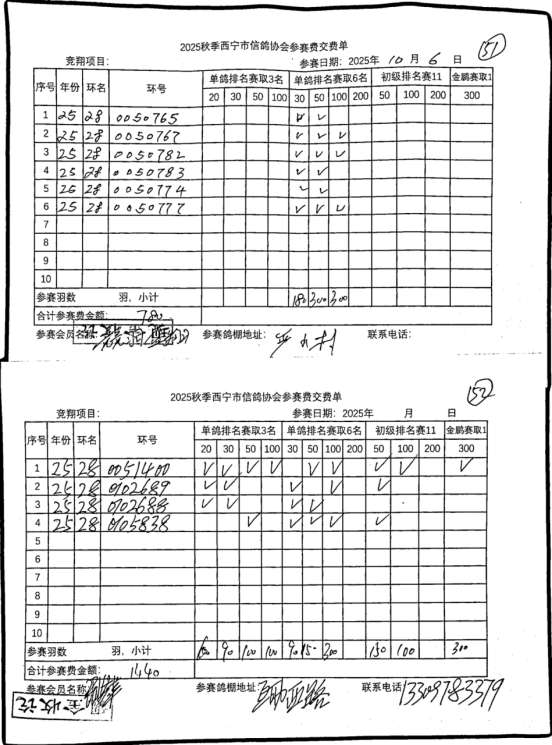 2025秋季西宁市信鸽协会参赛费交费单
151
竞翔项目： 参赛日期：2025年 10 月 6 日
序号 年份 环名 环号 单鸽排名赛取3名 单鸽排名赛取6名 初级排名赛11 金鹏赛取1
20 30 50 100 30 50 100 200 50 100 200 300
1 25 28 0050765 ✓ ✓
2 25 28 0050767 ✓ ✓ ✓
3 25 28 0050782 ✓ ✓ ✓
4 25 28 0050783 ✓ ✓
5 25 28 0050774 ✓ ✓
6 25 28 0050777 ✓ ✓ ✓
7
8
9
10
参赛羽数 羽，小计 180 300 300
合计参赛费金额： 780
参赛会员名称 参赛鸽棚地址： 村 联系电话：
2025秋季西宁市信鸽协会参赛费交费单
152
竞翔项目： 参赛日期：2025年 月 日
序号 年份 环名 环号 单鸽排名赛取3名 单鸽排名赛取6名 初级排名赛11 金鹏赛取1
20 30 50 100 30 50 100 200 50 100 200 300
1 25 28 0051400 ✓ ✓ ✓ ✓ ✓ ✓ ✓ ✓ ✓
2 25 28 0102689 ✓ ✓ ✓ ✓ ✓
3 25 28 0102688 ✓ ✓ ✓ ✓
4 25 28 0105838 ✓ ✓ ✓ ✓ ✓
5
6
7
8
9
10
参赛羽数 羽，小计 90 100 100 90 150 300 150 100 300
合计参赛费金额： 1440
参赛会员名称 参赛鸽棚地址： 互助西路 联系电话：13309783379
金收讫